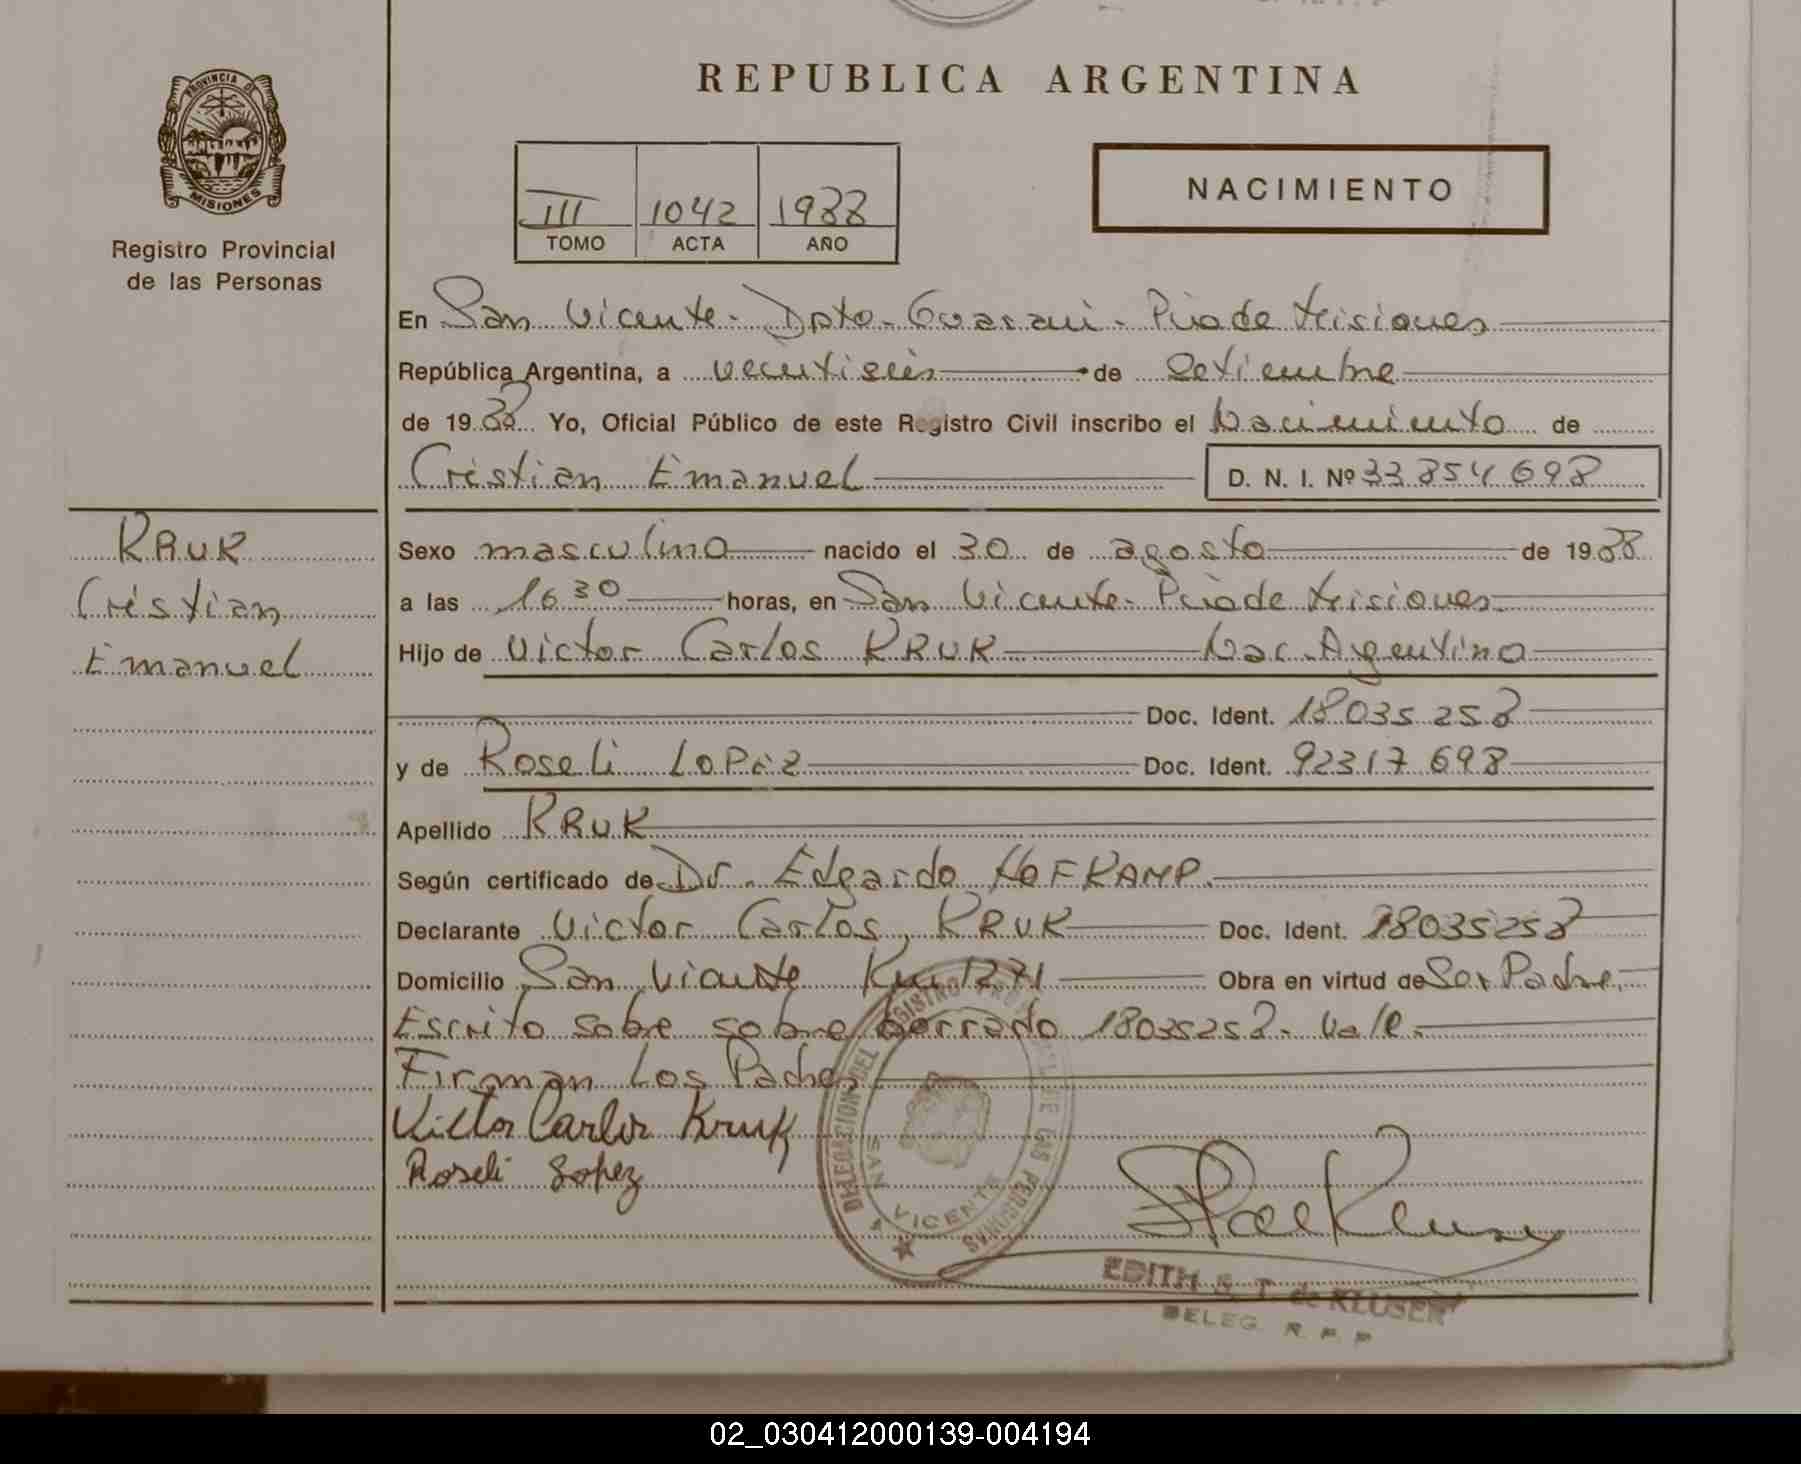 REPUBLICA ARGENTINA
PROVINCIA DE
MISIONES
Registro Provincial
de las Personas
III 1042 1988
TOMO ACTA AÑO
NACIMIENTO
En San Vicente - Dpto - Guarani - Pciade Misiones
República Argentina, a veintiseis de Setiembre
de 1988 Yo, Oficial Público de este Registro Civil inscribo el Nacimiento de
Cristian Emanuel D. N. I. Nº 33 854 698
KRUK
Cristian
Emanuel
Sexo masculino nacido el 30 de agosto de 1988
a las 16 30 horas, en San Vicente - Pciade Misiones
Hijo de Victor Carlos KRUK Nac. Argentina
Doc. Ident. 18035 258
y de Roseli LOPEZ Doc. Ident. 92317 698
Apellido KRUK
Según certificado de Dr. Edgardo HOFKAMP.
Declarante Victor Carlos KRUK Doc. Ident. 18035258
Domicilio San Vicente Km 1271 Obra en virtud de Ser Padre.
Escrito sobre sobre borrado 18035258 - Vale -
Firman Los Padres
Victor Carlos Kruk
Roseli Lopez
DELEGACION DEL REGISTRO PROVINCIAL DE LAS PERSONAS
SAN VICENTE
EDITH S. T. de KLUSER
DELEG. R. P. P
02_030412000139-004194